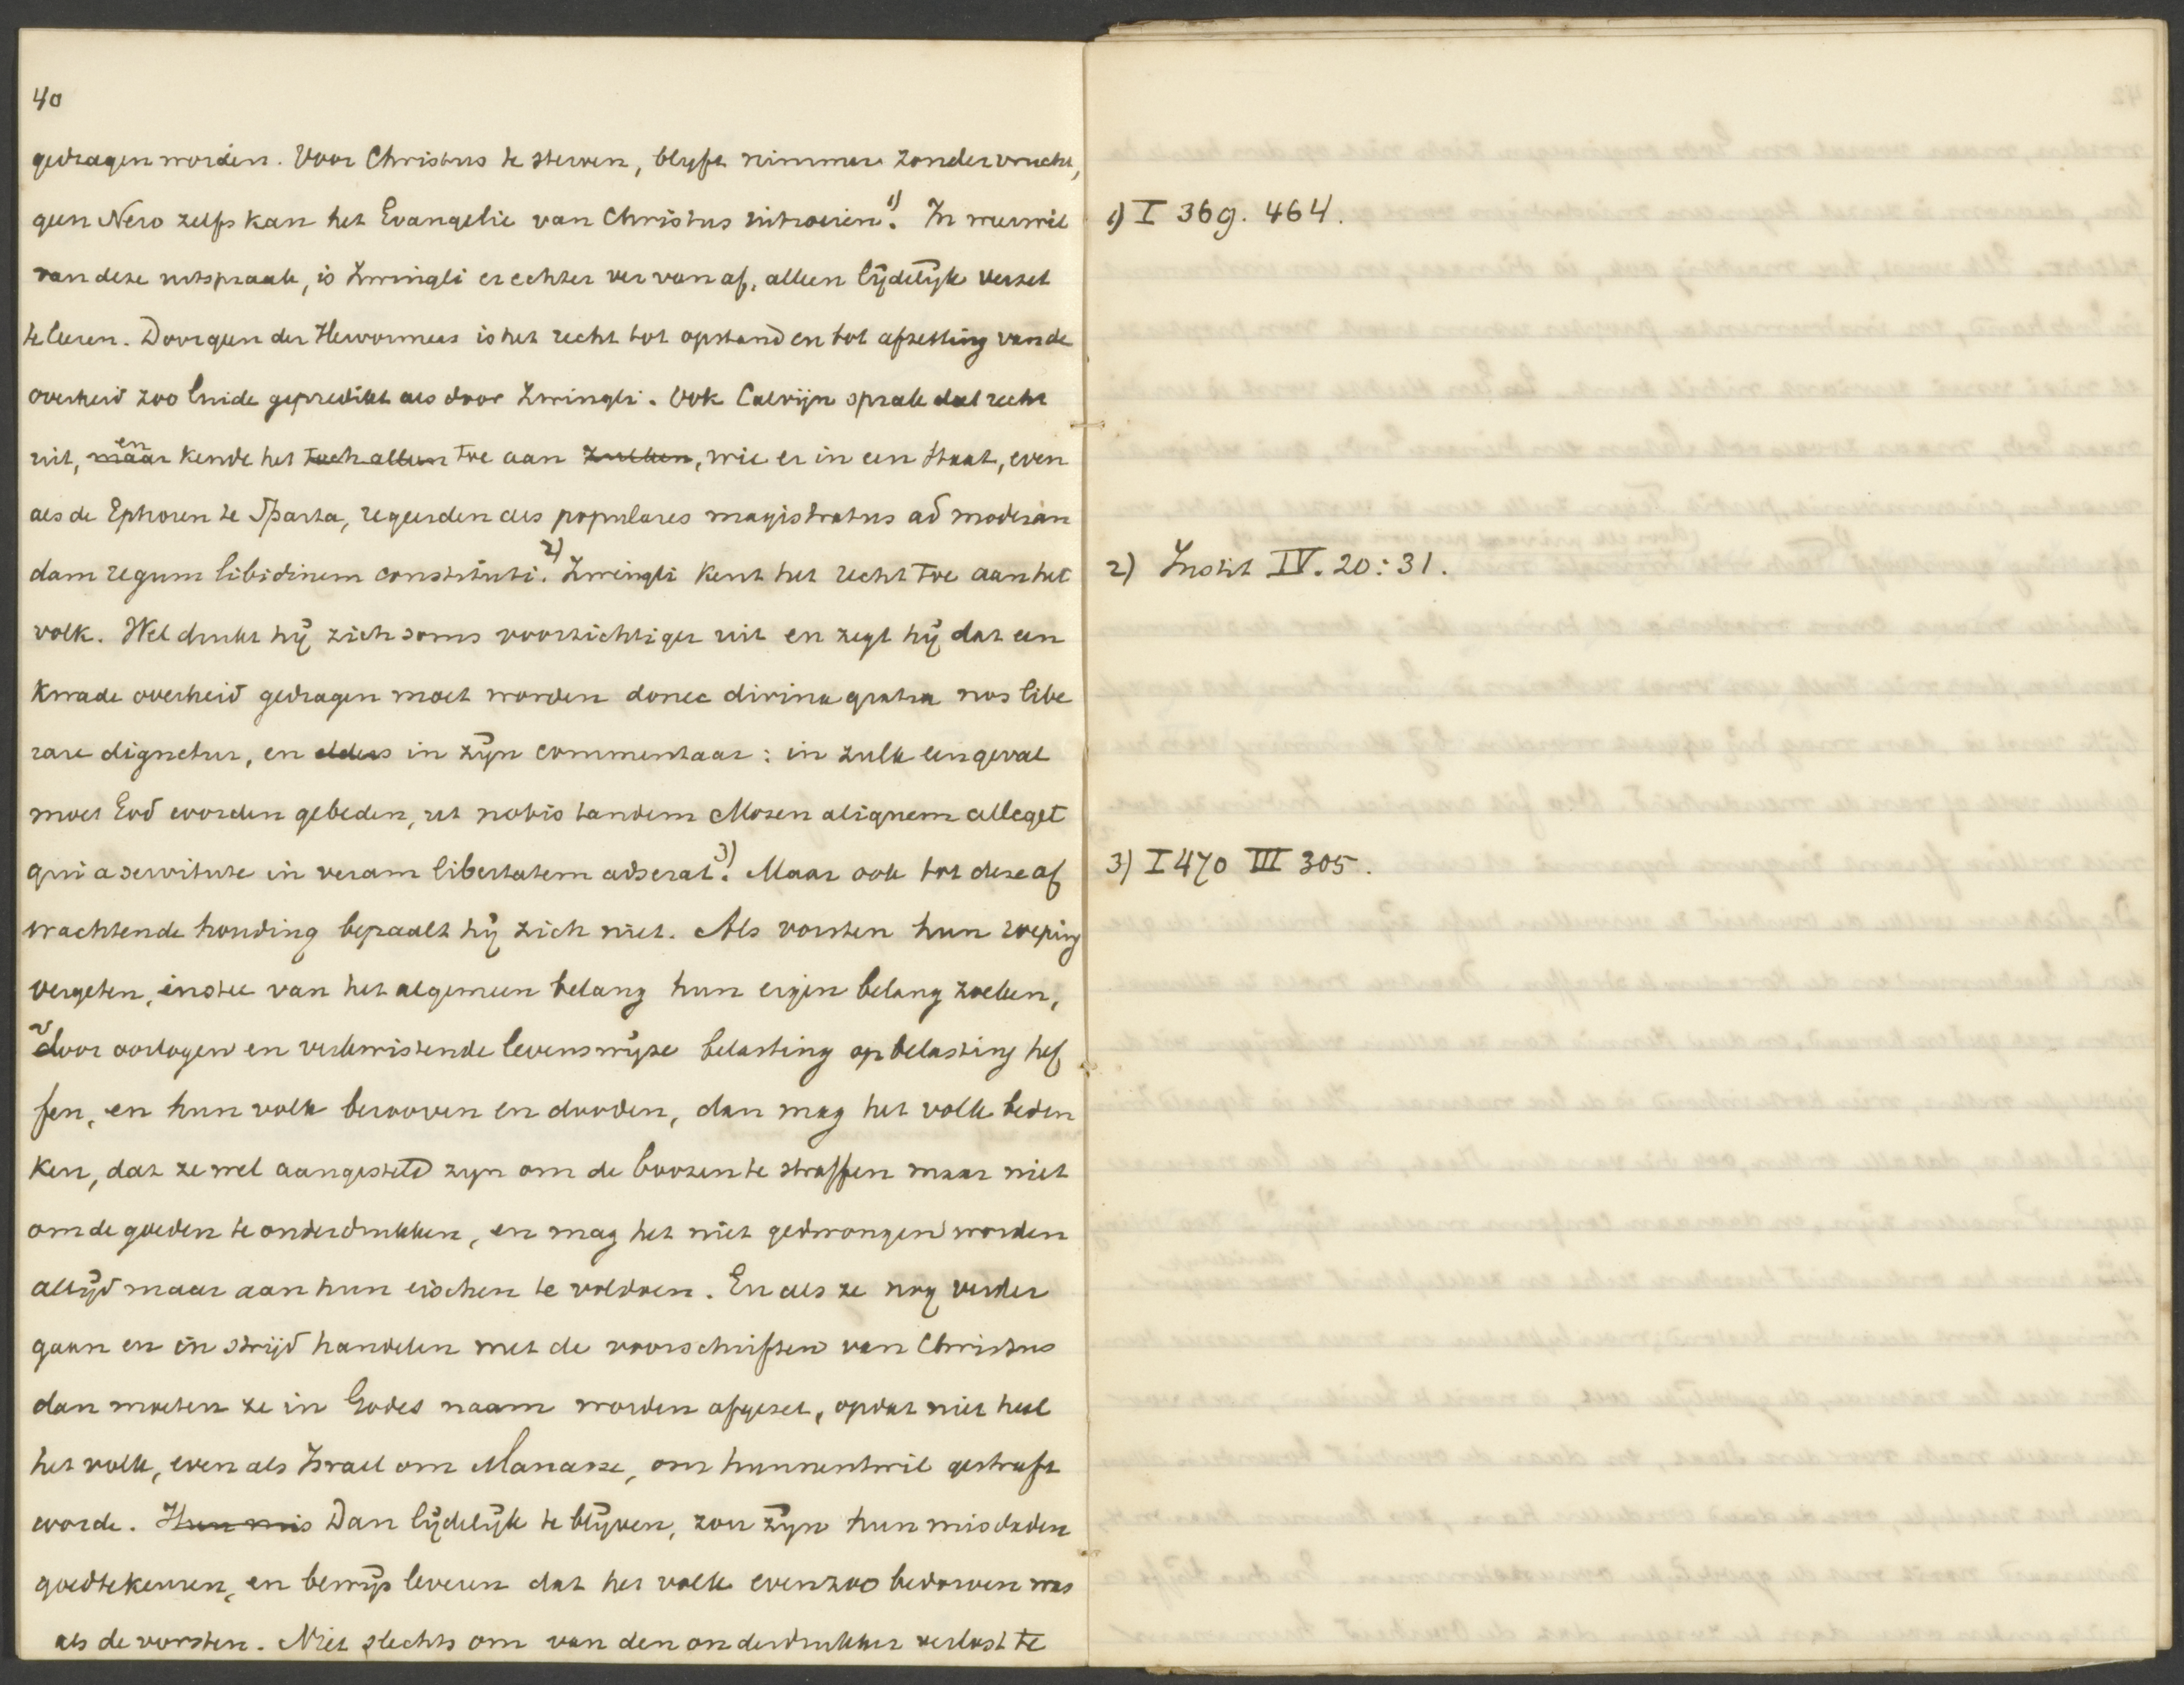 40
gedragen worden. Voor Christus te sterven, blyft nimmer zonder vrucht,
geen Nero zelfs kan het Evangelie van Christus uitroeien 1). In weerwil
van deze uitspraak, is Zwingli er echter ver van af, alleen lijdelijk verzet
te leeren. Door geen der Hervormers is het recht tot opstand en tot afzetting van de
overheid zoo luide gepredikt als door Zwingli. Ook Calvijn sprak dat recht
uit, maar en kende het toch alleen toe aan zulken, wie er in een Staat, even
als de Ephoren te Sparta, regeerden als populares magistratus ad moderan
dam regum libidinem constituti. 2) Zwingli kent het recht toe aan het
volk. Wel drukt hij zich soms voorzichtiger uit en zegt hij dat een
kwade overheid gedragen moet worden donec divina gratia nos libe
rare dignetur, en elders in zijn commentaar: in zulk een geval
moet God worden gebeden, ut nobis tandem Mosen aliquem alleget
qui a servitute in veram libertatem adserat. 3) Maar ook tot deze af
wachtende houding bepaalt hij zich niet. Als vorsten hun roeping
vergeten, instee van het algemeen belang hun eigen belang zoeken,
door oorlogen en verkwistende levenswijze belasting op belasting hef
fen, en hun volk berooven en dooden, dan mag het volk beden
ken, dat ze wel aangesteld zyn om de boozen te straffen maar niet
om de goeden te onderdrukken, en mag het niet gedwongen worden
altijd maar aan hun eischen te voldoen. En als ze nog verder
gaan en in strijd handelen met de voorschriften van Christus
dan moeten ze in Godes naam worden afgezet, opdat niet heel
het volk, even als Israel om Manasse, om hunnentwil gestraft
worde. Hun mis Dan lijdelijk te blijven, zou zijn hun misdaden
goedtekeuren, en bewijs leveren dat het volk evenzoo bedorven was
als de vorsten. Niet slechts om van den onderdrukker verlost te
1) I 369. 464.
2) Instit IV. 20:31.
3) I 470 III 305.